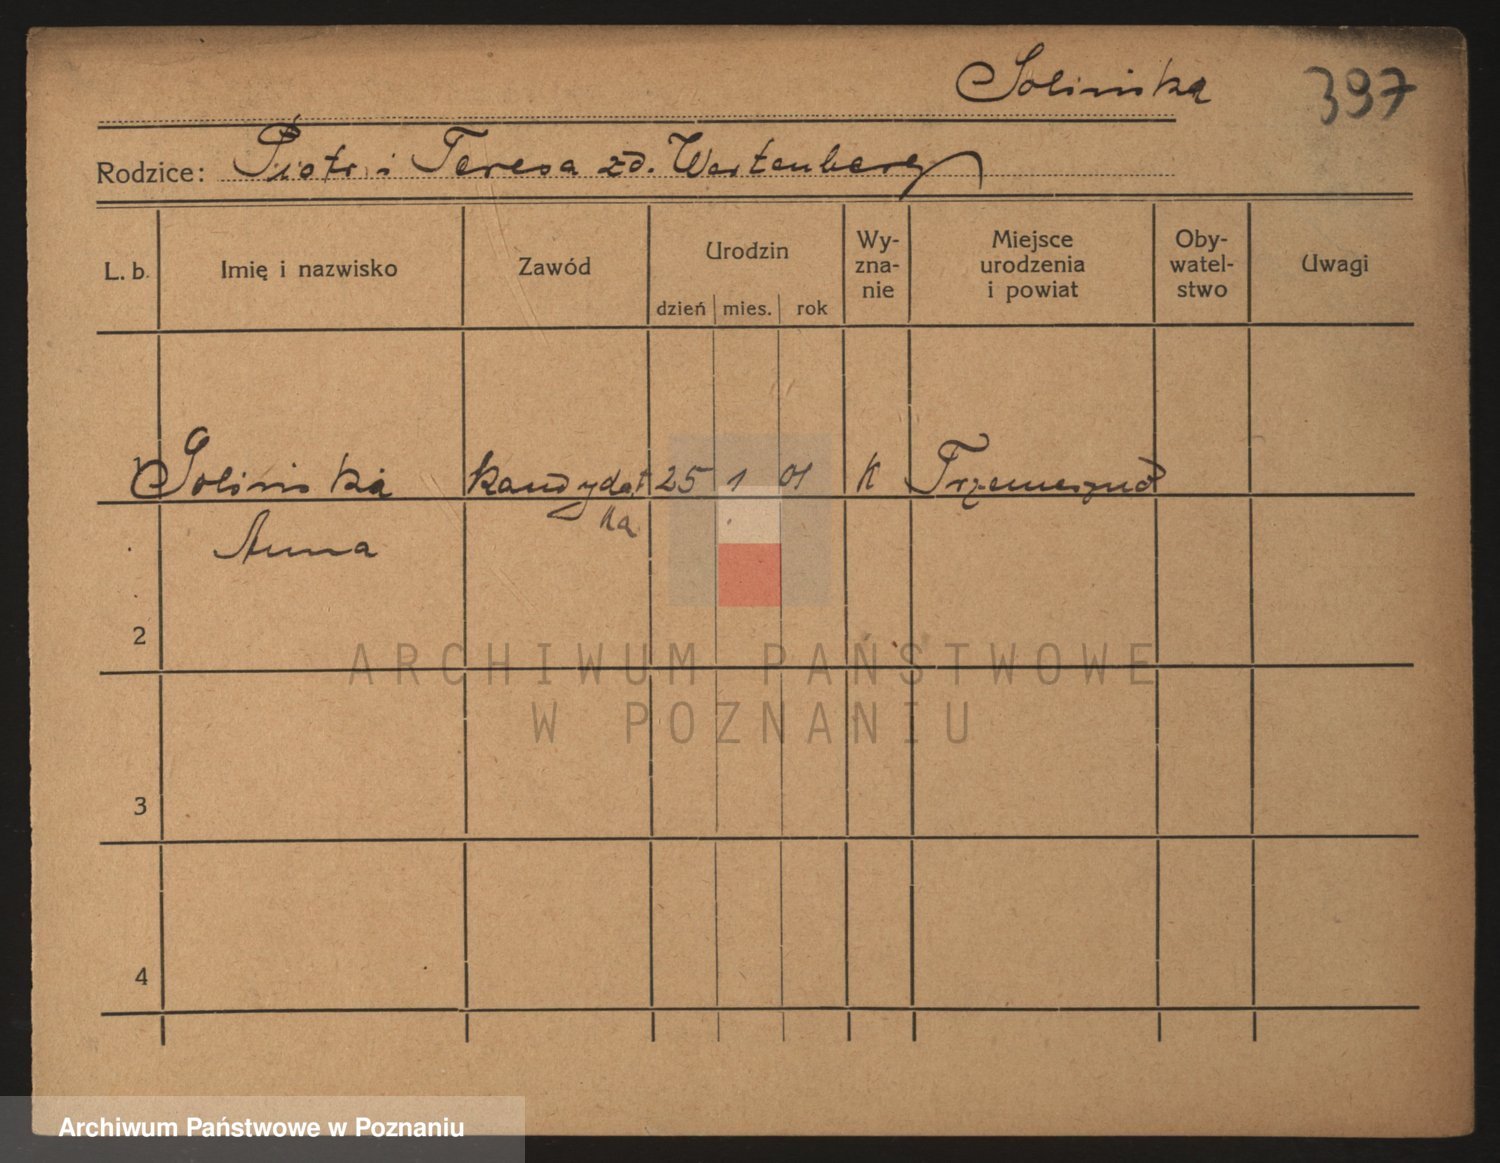 Solińska
397
Rodzice: Piotr i Teresa zd. Wartenberg
L. b. Imię i nazwisko Zawód Urodzin dzień mies. rok Wy-zna-nie Miejsce urodzenia i powiat Oby-watel-stwo Uwagi
1 Solińska kandydat 25 1 01 K Trzemeszno
ka
Anna
2
3
4
ARCHIWUM PAŃSTWOWE
W POZNANIU
Archiwum Państwowe w Poznaniu